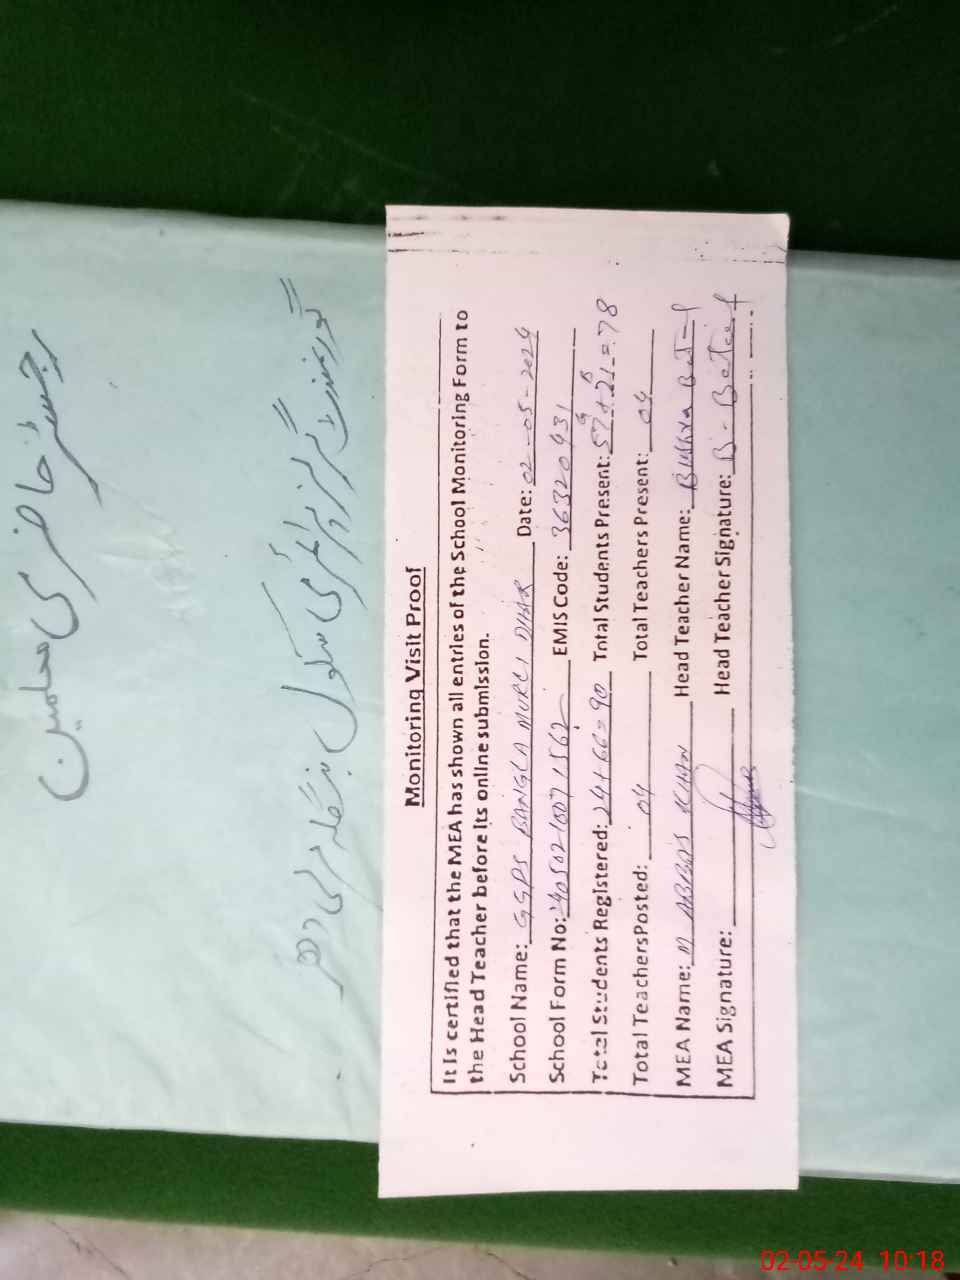 رجسٹر حاضری معلمین
گورنمنٹ گرلز پرائمری سکول بنگلہ مرلی دھر
Monitoring Visit Proof
It is certified that the MEA has shown all entries of the School Monitoring Form to
the Head Teacher before its online submission.
School Name: GGPS BANGLA MURLI DHAR Date: 02-05-2024
School Form No: EMIS Code: 36320931
Total Students Registered: 24+66=90 Total Students Present: 57+21=78
G B
Total Teachers Posted: 04 Total Teachers Present: 04
MEA Name: M ABBAS KHAN Head Teacher Name: Bushra
MEA Signature: Head Teacher Signature: B.
02-05-24 10:18